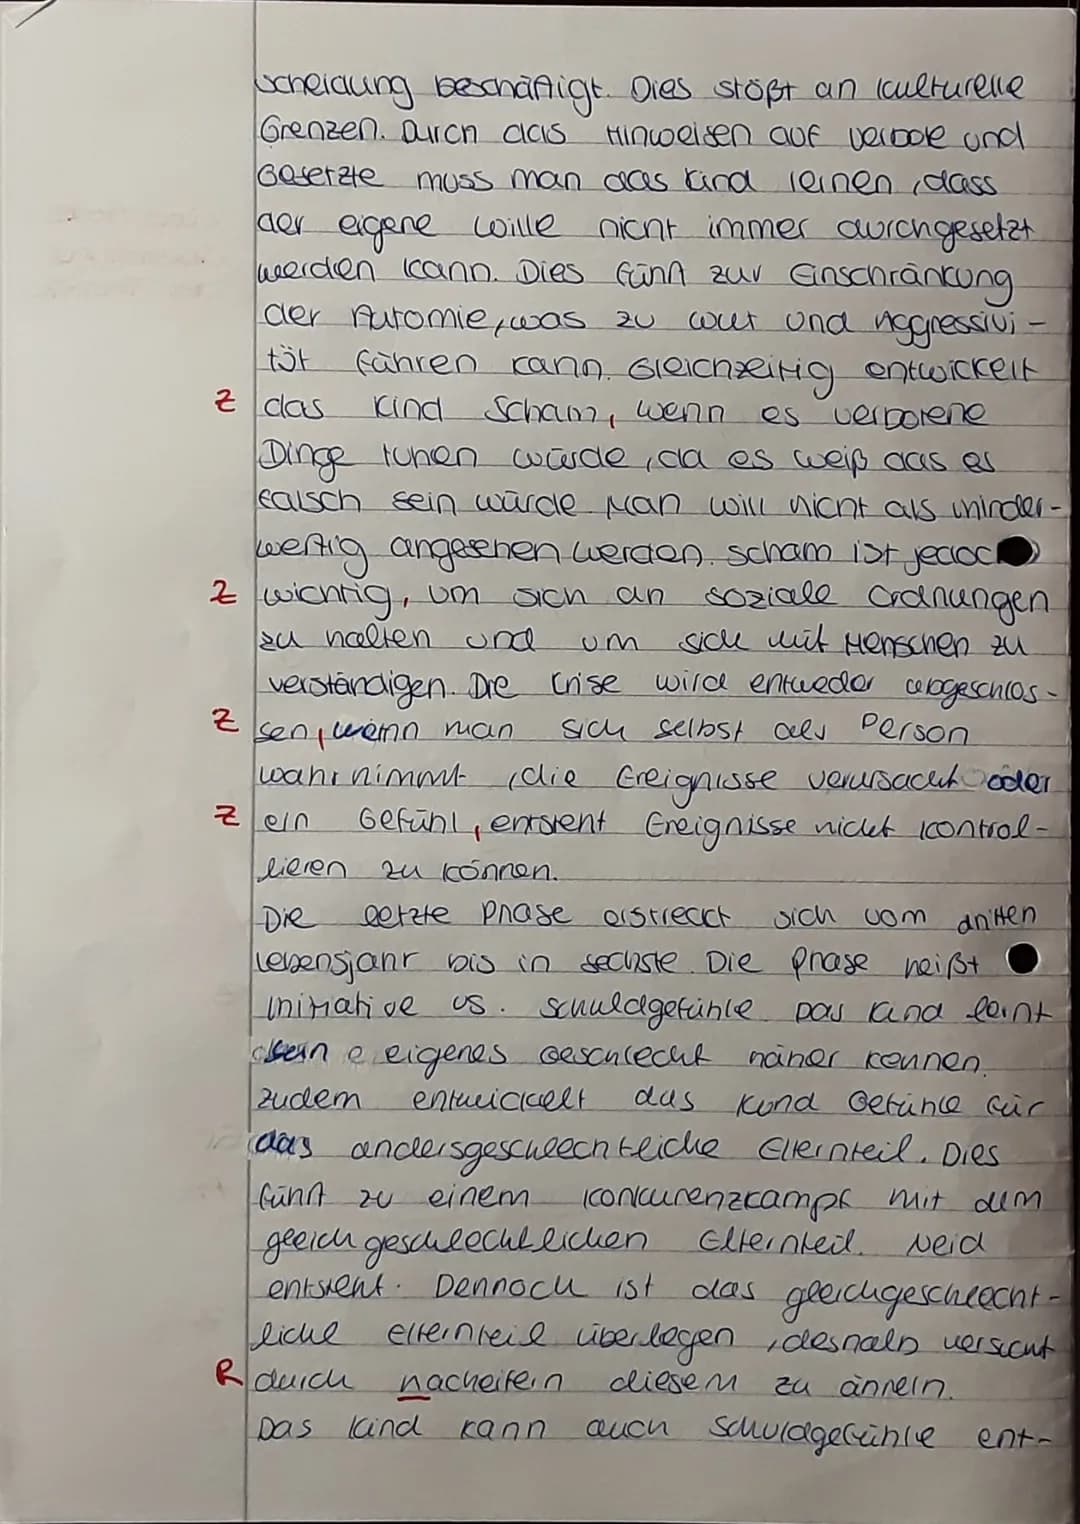 scheidung beschäftigt. Dies stößt an kulturelle
Grenzen. Durch das Hinweisen auf Verbote und
Gesetzte muss man das Kind lernen, dass
der eigene Wille nicht immer durchgesetzt
werden kann. Dies führt zur Einschränkung
der Automie, was zu Wut und Aggressivi-
tät führen kann. Gleichzeitig entwickelt
Z das Kind Scham, wenn es verbotene
Dinge tunen würde, da es weiß das es
falsch sein würde. Man will nicht als minder-
wertig angesehen werden. Scham ist jedoch
Z wichtig, um sich an soziale Ordnungen
zu halten und um sich mit Menschen zu
verständigen. Die Krise wird entweder abgeschlos-
Z sen, wenn man sich selbst als Person
wahrnimmt, die Ereignisse verursacht oder
Z ein Gefühl, entsteht Ereignisse nicht kontrol-
lieren zu können.
Die letzte Phase erstreckt sich vom dritten
Lebensjahr bis in sechste. Die Phase heißt
Initiative vs. Schuldgefühle. Das Kind lernt
sein e eigenes Geschlecht näher kennen.
Zudem entwickelt das Kind Gefühle für
das andersgeschlechtliche Elternteil. Dies
führt zu einem Konkurenzkampf mit dem
gleichgeschlechtlichen Elternteil. Neid
entsteht. Dennoch ist das gleichgeschlecht-
liche Elternteil überlegen, deshalb versucht
R durch nacheifern diesem zu ähneln.
Das Kind kann auch Schuldgefühle ent-